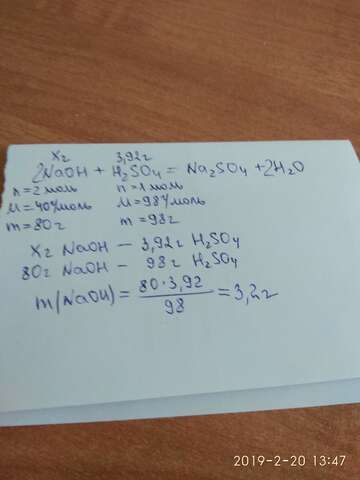 xг 3,92г
2NaOH + H₂SO₄ = Na₂SO₄ + 2H₂O
n = 2 моль n = 1 моль
M = 40г/моль M = 98г/моль
m = 80г m = 98г
xг NaOH – 3,92г H₂SO₄
80г NaOH – 98г H₂SO₄
m(NaOH) = 80·3,92 / 98 = 3,2г
2019-2-20 13:47